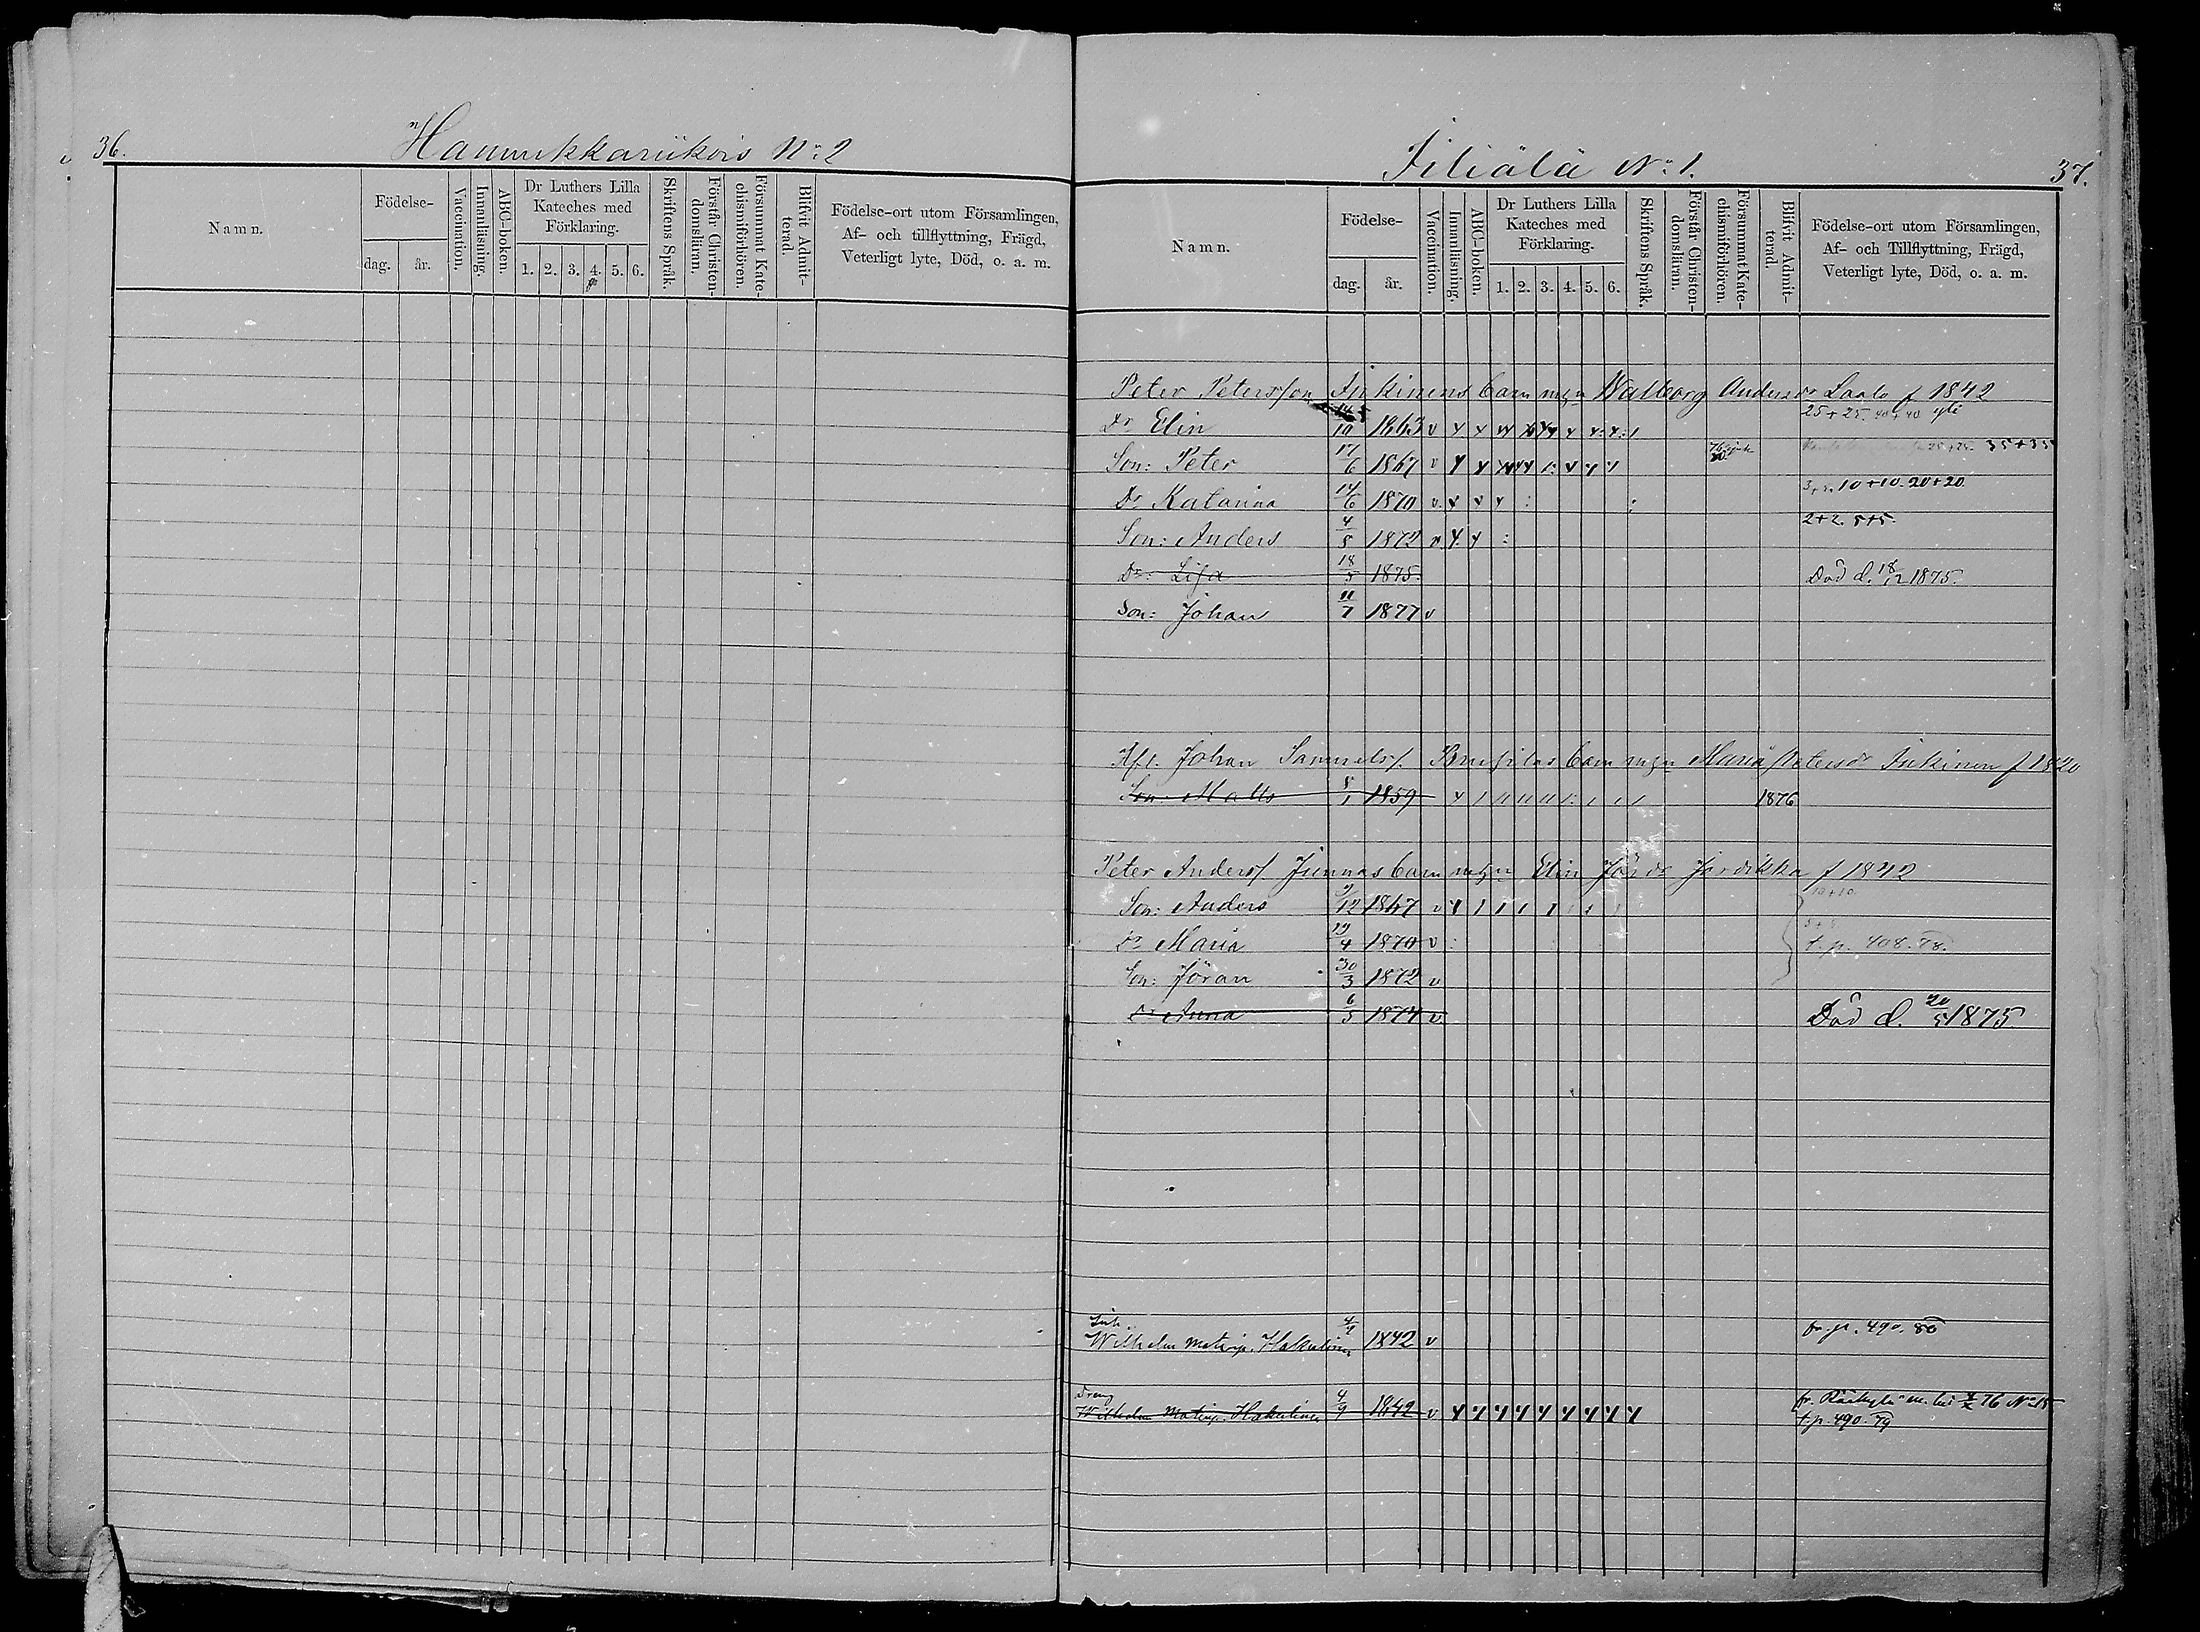 36.
Hannukkariikois No: 2
Namn.
Födelse-
dag.
år.
Vaccination.
Innanläsning.
ABC-boken.
Dr Luthers Lilla
Kateches med
Förklaring.
1. 2. 3. 4. 5. 6.
Skriftens Språk.
Förstår Christen-
domsläran.
Försummat Kate-
chismiförhören.
Blifvit Admit-
terad.
Födelse-ort utom Församlingen,
Af- och tillflyttning, Frägd,
Veterligt lyte, Död, o. a. m.
Filiälä No: 1.
37.
Namn.
Födelse-
dag.
år.
Vaccination.
Innanläsning.
ABC-boken.
Dr Luthers Lilla
Kateches med
Förklaring.
1. 2. 3. 4. 5. 6.
Skriftens Språk.
Förstår Christen-
domsläran.
Försummat Kate-
chismiförhören.
Blifvit Admit-
terad.
Födelse-ort utom Församlingen,
Af- och Tillflyttning, Frägd,
Veterligt lyte, Död, o. a. m.
Peter Petersson Inkinens barn m. Walborg Andersdr Laalo f 1842
Dr Elin 10 1863 v 25+25 40+40
Son: Peter 17/6 1867 v 35+35
Dr Katarina 14/6 1870 v 10+10. 20+20
Son: Anders 4/8 1872 v 2+2. 5+5.
Dr: Lisa 18/5 1875. Död d. 18/12 1875.
Son: Johan 11/7 1877 v
Johan Samuels. barn Maria Petersdr Inkinen f 1820
Son: Matts 8/1 1859 1876
Peter Anders. Junnas barn Elin Jör. dr f 1842
Son: Anders /12 1867 v 10+10
Dr Maria 19/4 1870 v t. p. 408. 78.
Son: Jöran 30/3 1872 v
Dr Anna 6/5 1874 v Död d. 20/5 1875
Inh.
Wilhelm Hakulinen 4/9 1842 v fr. p. 490. 80
Dreng
Wilhelm Hakulinen 4/9 1842 v fr. 76 No 15
t. p. 490. 79